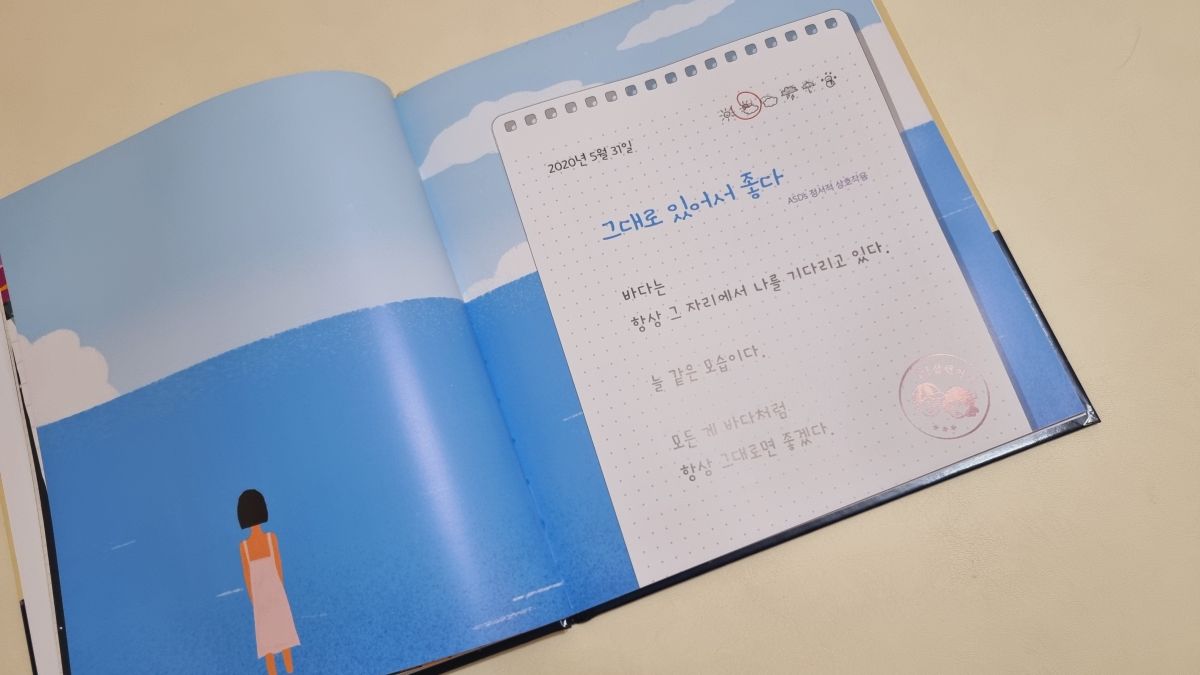 2020년 5월 31일
그대로 있어서 좋다
ASDs 정서적 상호작용
바다는
항상 그 자리에서 나를 기다리고 있다.
늘 같은 모습이다.
모든 게 바다처럼
항상 그대로면 좋겠다.